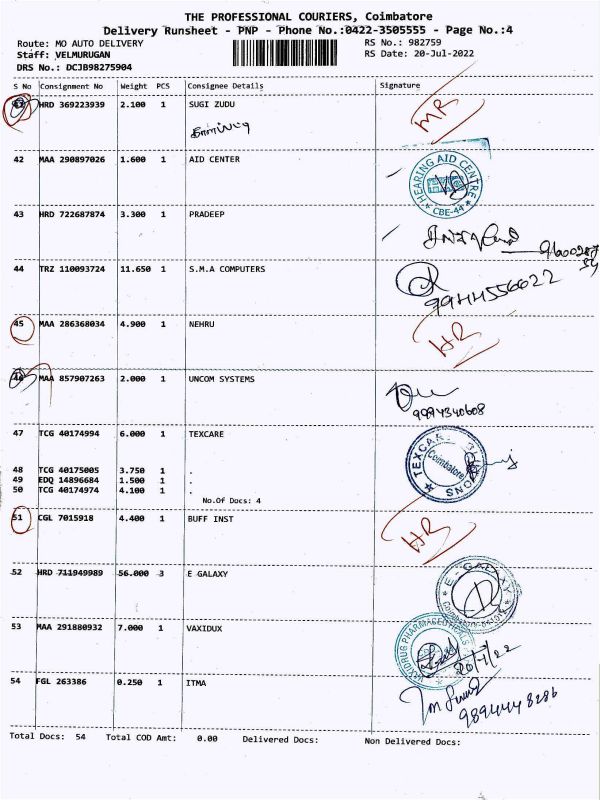 THE PROFESSIONAL COURIERS, Coimbatore
Delivery Runsheet - PNP - Phone No.:0422-3505555 - Page No.:4
Route: MO AUTO DELIVERY RS No.: 982759
Staff: VELMURUGAN RS Date: 20-Jul-2022
DRS No.: DCJB98275904
S No Consignment No Weight PCS Consignee Details Signature
HRD 369223939 2.100 1 SUGI ZUDU
42 MAA 290897026 1.600 1 AID CENTER
HEARING AID CENTRE
CBE-44
43 HRD 722687874 3.300 1 PRADEEP
44 TRZ 110093724 11.650 1 S.M.A COMPUTERS
9944556622
45 MAA 286368034 4.900 1 NEHRU
HR
46 MAA 857907263 2.000 1 UNCOM SYSTEMS
9994340608
47 TCG 40174994 6.000 1 TEXCARE
Coimbatore
48 TCG 40175005 3.750 1 .
49 EDQ 14896684 1.500 1 .
50 TCG 40174974 4.100 1 .
No.Of Docs: 4
51 CGL 7015918 4.400 1 BUFF INST
HR
52 HRD 711949989 56.000 3 E GALAXY
E - GALAXY
53 MAA 291880932 7.000 1 VAXIDUX
20/7/22
54 FGL 263386 0.250 1 ITMA
9894448286
Total Docs: 54 Total COD Amt: 0.00 Delivered Docs: Non Delivered Docs: